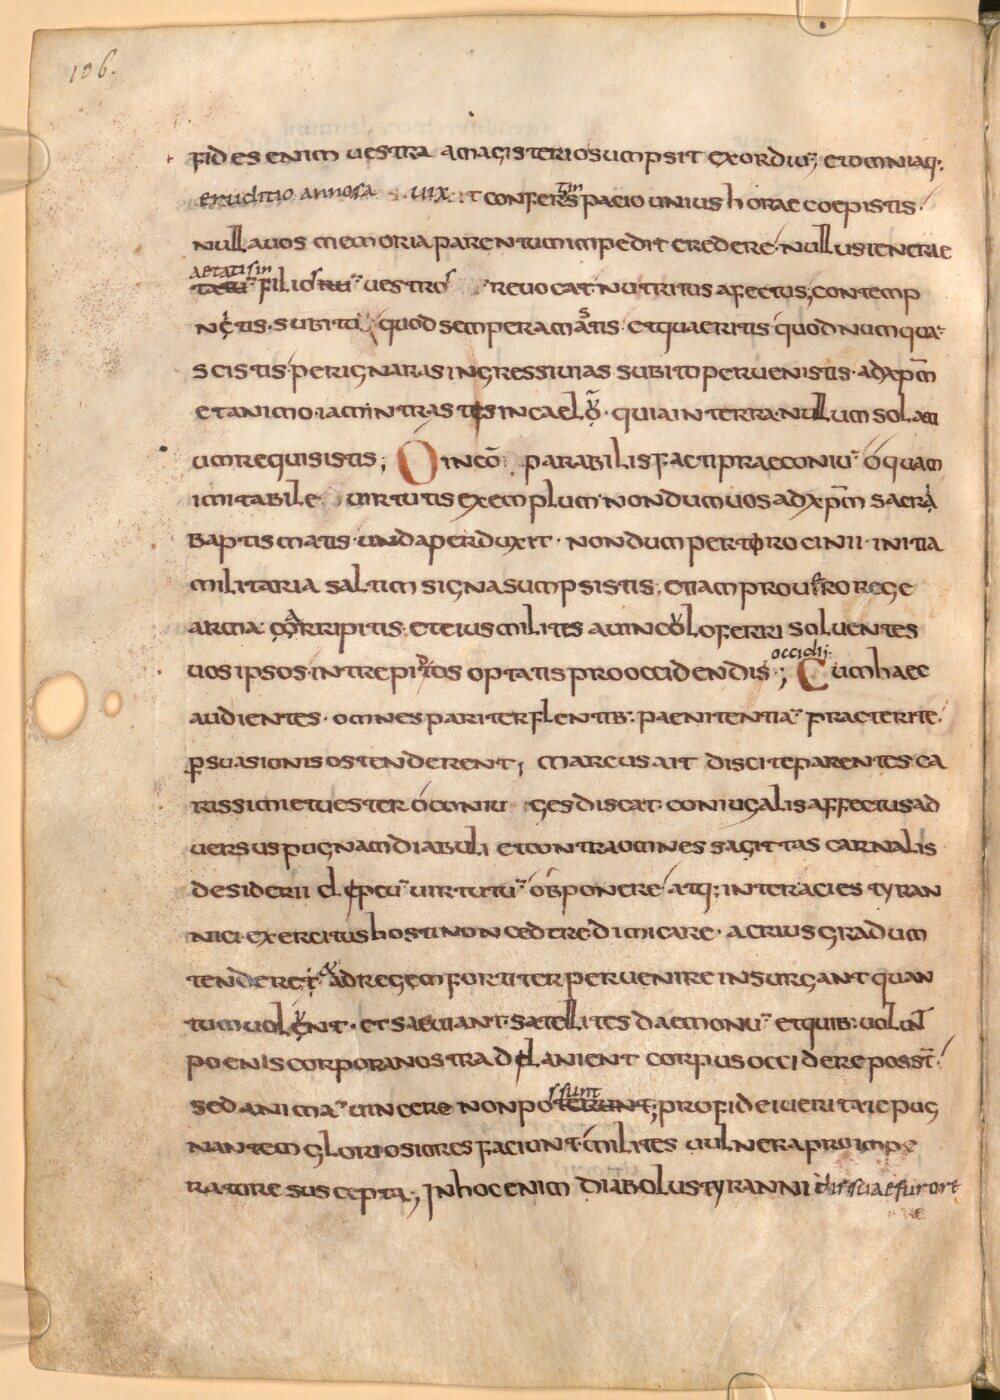 106.
fides enim uestra a magisterio sumpsit exordiu; et omniaq:
eruditio annosa uix confertin spacio unius horae coepistis.
nulla uos memoria parentum impedit credere. nullus tenerae
aetatis in filios uestros reuocat nutritus afectus, contemp
nitis. subitu quod semper amastis. et quaeritis quod numqua
scistis. per ignaras ingressi uias subito peruenistis. ad xpm
et animo iam intrastes in caelũ. quia in terra nullum solaci
um requisistis; O inconparabilis facti praeconiu o quam
imitabile uirtutis exemplum. nondum uos ad xpm sacra
baptismatis unda perduxit. nondum per tirocinii initia
militaria saltim signa sumpsistis. etiam pro uero rege
arma corripitis. et eius milites a uinculo ferri soluentes
uos ipsos intrepidos optatis pro occidendis occidi; Cum haec
audientes. omnes pariter flentib: paenitentia praeterite
psuasionis ostenderent; marcus ait discite parentes ca
rissimi et uester o coniuges discat coniugalis affectus ad
uersus pugnam diabuli et contra omnes sagittas carnalis
desiderii clipeu uirtutu obponere atq: inter acies tyran
nici exercitus hosti non cedere dimicare. acrius gradum
tendere et ad regem fortiter peruenire insurgant quan
tum uolunt. et saeuiant satellites daemonu et quib: uolun
poenis corpora nostra dilanient corpus occidere posst.
sed anima uincere non possunt; pro fidei ueritate pug
nantem gloriosiores faciunt milites uulnera pro impe
ratore suscepta; In hoc enim diabolus tyranni dis suae furore